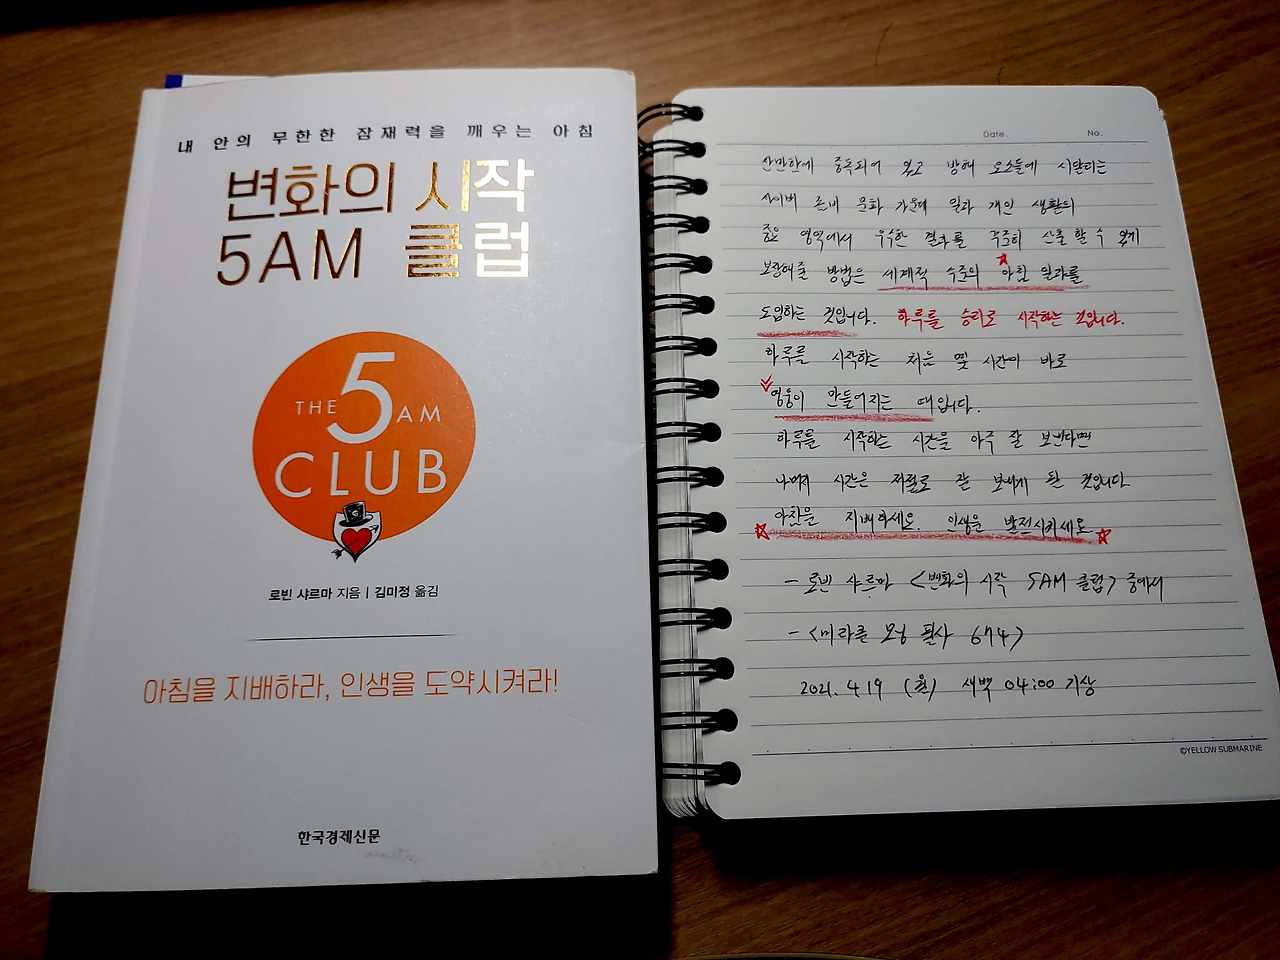 내 안의 무한한 잠재력을 깨우는 아침
변화의 시작
5AM 클럽
THE 5 AM
CLUB
로빈 샤르마 지음 | 김미정 옮김
아침을 지배하라, 인생을 도약시켜라!
한국경제신문
Date. No.
산만함에 중독되어 있고 방해 요소들에 시달리는
사이버 좀비 문화 가운데 일과 개인 생활의
중요 영역에서 우수한 결과를 꾸준히 산출할 수 있게
보장해줄 방법은 세계적 수준의 아침 일과를
도입하는 것입니다. 하루를 승리로 시작하는 것입니다.
하루를 시작하는 처음 몇 시간이 바로
영웅이 만들어지는 때입니다.
하루를 시작하는 시간을 아주 잘 보낸다면
나머지 시간은 저절로 잘 보내게 될 것입니다.
아침을 지배하세요. 인생을 발전시키세요
- 로빈 샤르마 <변화의 시작 5AM 클럽> 중에서
- <미라클 모닝 필사 674>
2021. 4. 19 (월) 새벽 04:00 기상
©YELLOW SUBMARINE